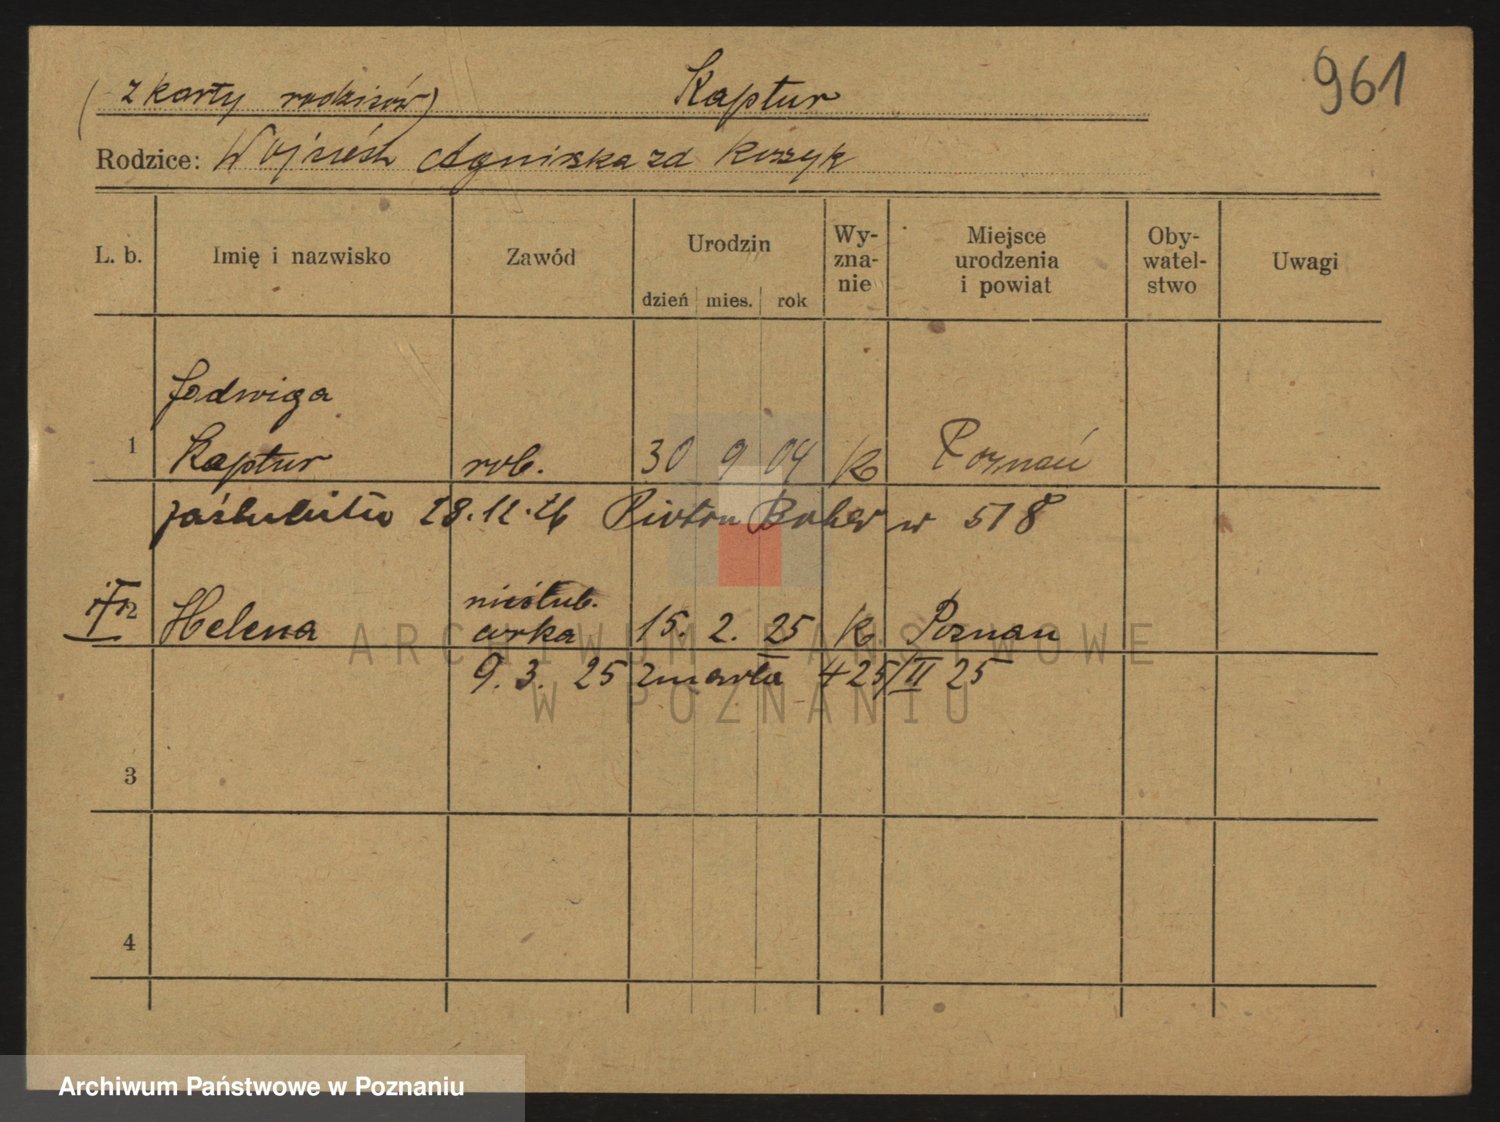 961
(z karty rodziców) Kaptur
Rodzice: Wojciech Agnieszka zd
L. b. Imię i nazwisko Zawód Urodzin dzień mies. rok Wy-zna-nie Miejsce urodzenia i powiat Oby-watel-stwo Uwagi
Jadwiga
1 Kaptur rob. 30 9 04 k Poznań
zaślubiła 28.12.26 Piotra w 518
nieślub.
Helena córka 15. 2. 25 k Poznań
9. 3. 25 zmarła + 25/II 25
ARCHIWUM PAŃSTWOWE
W POZNANIU
3
4
Archiwum Państwowe w Poznaniu